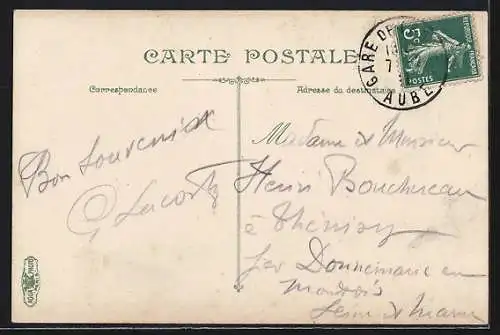 CARTE POSTALE
Correspondance
Adresse du destinataire
GARE DE
AUBE
5
REPUBLIQUE FRANÇAISE
POSTES
Bon Souvenir
G Lacoste
Madame et Monsieur
Henri Boucherau
à Thénisy
par Donnemarie en
Montois
Seine et Marne